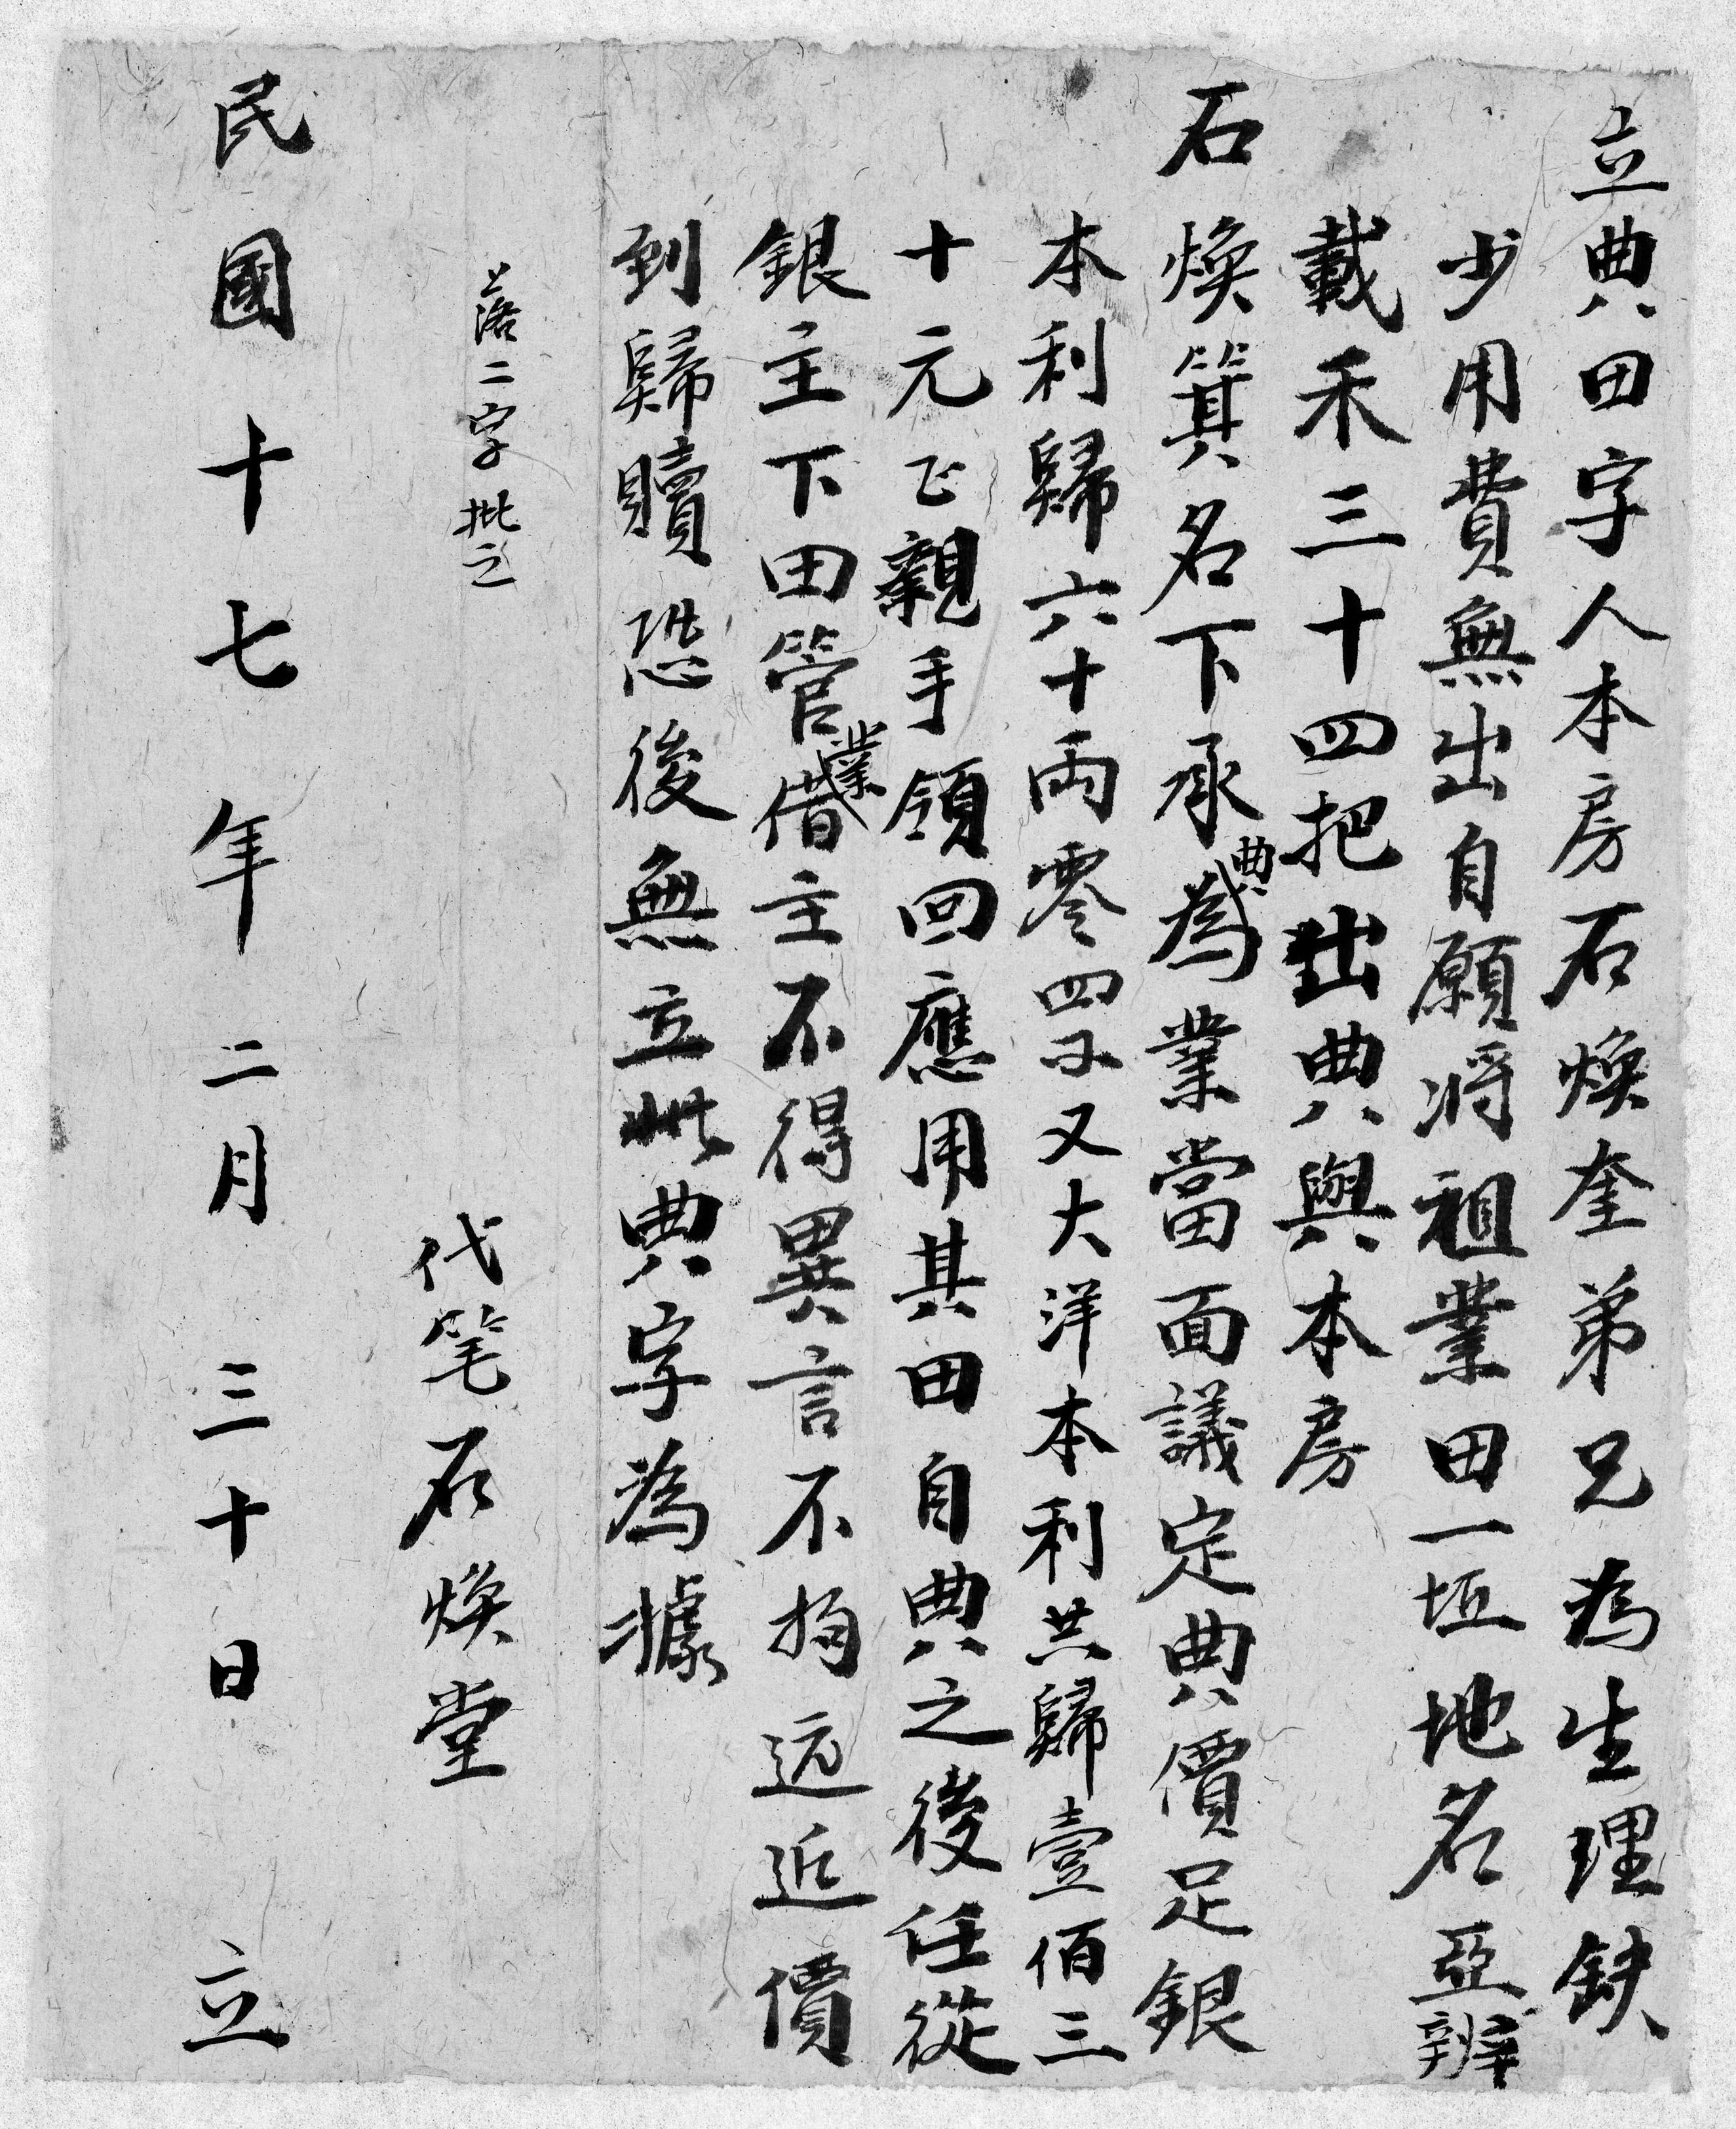 立典田字人本房石煥奎弟兄為生理缺
少用費無出自願將祖業田一坵地名亞辨
載禾三十四把出典與本房
石煥箕名下承典為業當面議定典價足銀
本利歸六十両零四卡又大洋本利共歸壹佰三
十元正親手領回應用其田自典之後任從
銀主下田管業借主不得異言不拘远近價
到歸贖恐後無立此典字為據
落二字批之
代笔石煥堂
民國十七年二月三十日立